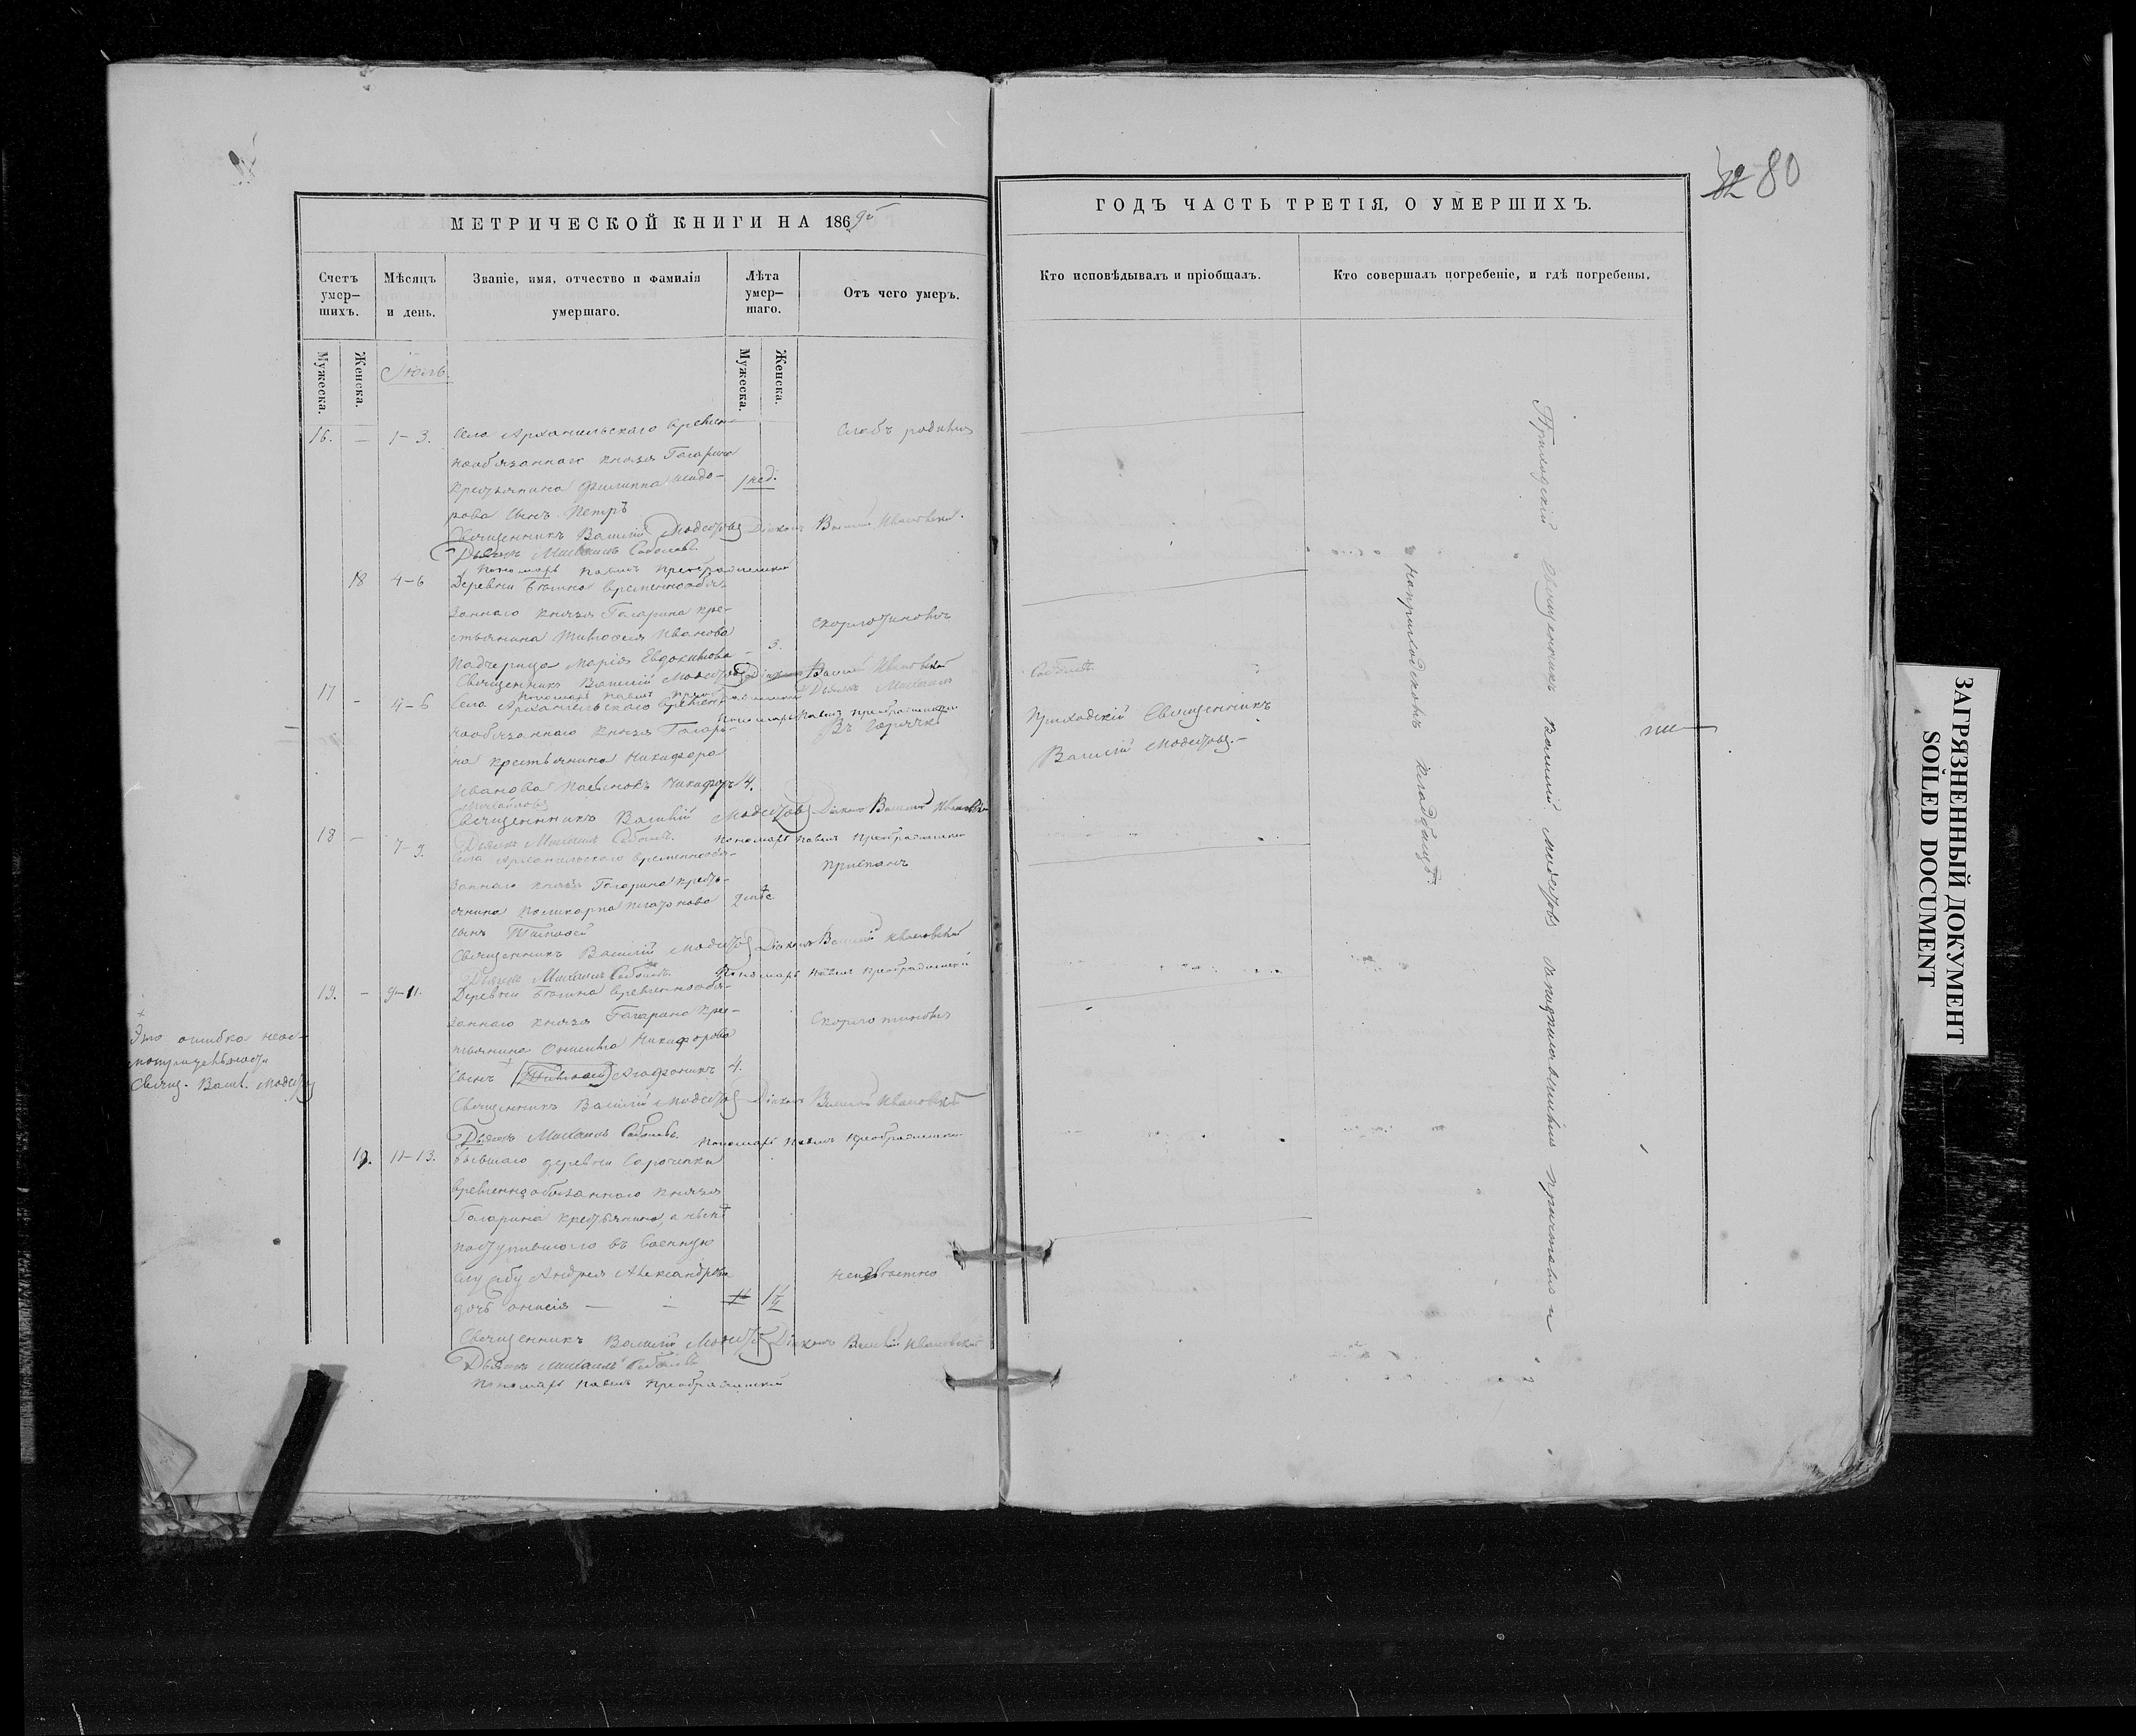 80
МЕТРИЧЕСКОЙ КНИГИ НА 1869
Счетъ умер–шихъ.
Мѣсяцъ и день.
Званіе, имя, отчество и фамилія умершаго.
Лѣта умер–шаго.
Отъ чего умеръ.
Мужеска.
Женска.
Іюль.
Мужеска.
Женска.
16. — 1–3. Села Архангельскаго времен–
нообязаннаго князя Гагарина
крестьянина Филиппа
рова сынъ Петръ
1 нед.
Слабъ родился
Священникъ Василій Модестовъ Діаконъ Василій Ивановскій.
Дьячекъ Михаилъ Соболевъ.
Пономарь Павелъ Преображенскій
18 4–6 Деревни временнообя–
заннаго князя Гагарина кре–
стьянина Тимофея Иванова
падчерица Марія Евдокимова – 3.
Священникъ Василій Модестовъ Діаконъ Василій Ивановскій
Пономарь Павелъ
Дьячекъ Михаилъ
Соболевъ.
Пономарь Павелъ Преображенскій
17 – 4–6 Села Архангельскаго времен–
нообязаннаго князя Гагари–
на крестьянина Никифора
Иванова пасынокъ Никифоръ 4.
Михайловъ
Въ горячкѣ
Приходскій Священникъ
Василій Модестовъ.–
Священникъ Василій Модестовъ Діаконъ Василій Ивановскій
Дьячекъ Михаилъ Соболевъ. Пономарь Павелъ Преображенскій
18 – 7–9. Села Архангельскаго временнообя–
заннаго князя Гагарина кресть–
янина Поликарпа Платонова
сынъ Тимофей
Священникъ Василій Модестовъ Діаконъ Василій Ивановскій
Дьячекъ Михаилъ Соболевъ. Пономарь Павелъ Преображенскій
19. – 9–11. Деревни временнообя–
заннаго князя Гагарина кре–
стьянина Никифорова
сынъ (Тимофей) Агафоникъ 4.
Священникъ Василій Модестовъ Діаконъ Василій Ивановскій
Дьячекъ Михаилъ Соболевъ. Пономарь Павелъ Преображенскій
Это ошибка неос–
мотрительности
Священ. Васил. Модестовъ
19. 11–13. Бывшаго деревни Сорочинки
временнообязаннаго князя
Гагарина крестьянина, а нынѣ
поступившаго въ военную
службу Андрея Александрова
дочь Анисія —
неизвѣстно
Священникъ Василій Модестовъ Діаконъ Василій Ивановскій
Дьячекъ Михаилъ Соболевъ
Пономарь Павелъ Преображенскій
ГОДЪ ЧАСТЬ ТРЕТІЯ, О УМЕРШИХЪ.
Кто исповѣдывалъ и пріобщалъ.
Кто совершалъ погребеніе, и гдѣ погребены.
Приходскій Священникъ Василій Модестовъ
на приходскомъ кладбищѣ.
ЗАГРЯЗНЕННЫЙ ДОКУМЕНТ
SOILED DOCUMENT